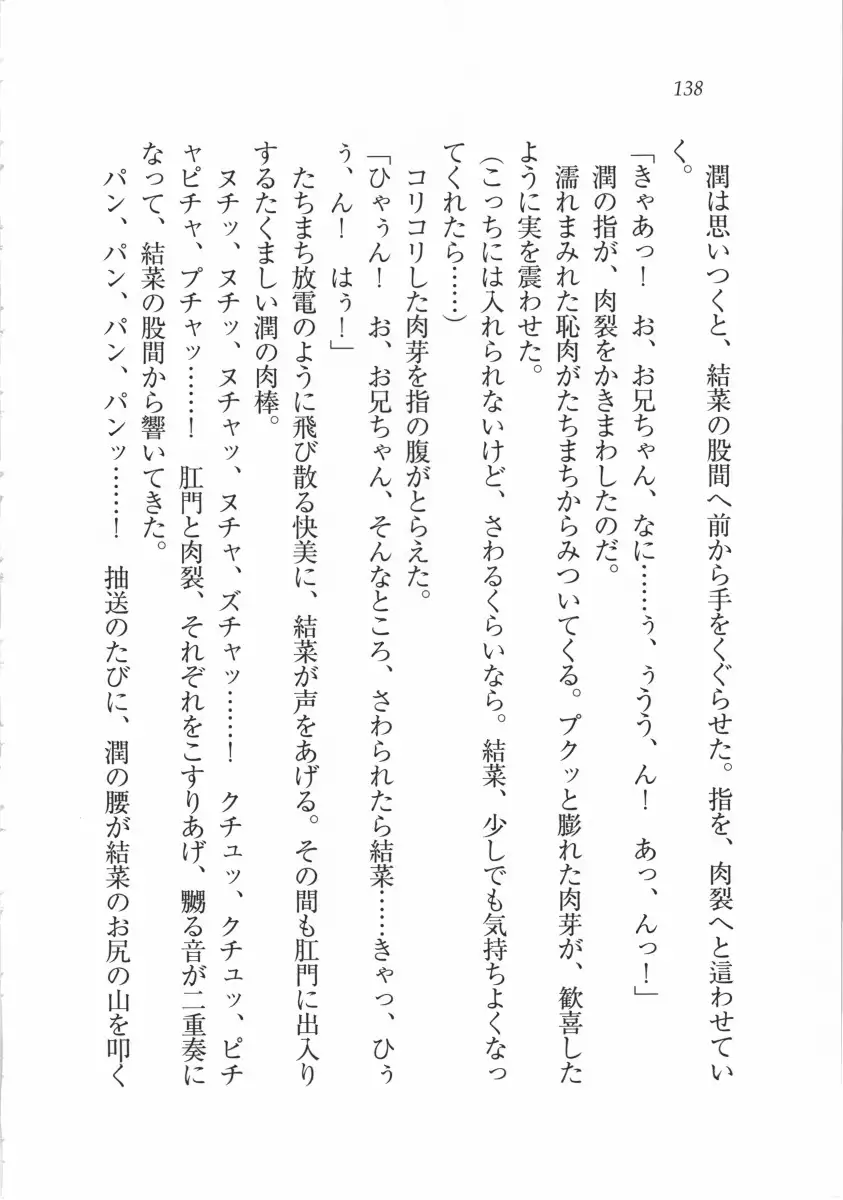 138
潤は思いつくと、結菜の股間へ前から手をくぐらせた。指を、肉裂へと這わせてい
く。
「きゃあっ！　お、お兄ちゃん、なに……ぅ、ぅうう、ん！　あっ、んっ！」
潤の指が、肉裂をかきまわしたのだ。
濡れまみれた恥肉がたちまちからみついてくる。プクッと膨れた肉芽が、歓喜した
ように実を震わせた。
（こっちには入れられないけど、さわるくらいなら。結菜、少しでも気持ちよくなっ
てくれたら……）
コリコリした肉芽を指の腹がとらえた。
「ひゃぅん！　お、お兄ちゃん、そんなところ、さわられたら結菜……きゃっ、ひぅ
ぅ、ん！　はぅ！」
たちまち放電のように飛び散る快美に、結菜が声をあげる。その間も肛門に出入り
するたくましい潤の肉棒。
ヌチッ、ヌチッ、ヌチャッ、ヌチャ、ズチャッ……！　クチュッ、クチュッ、ピチ
ャピチャ、プチャッ……！　肛門と肉裂、それぞれをこすりあげ、嬲る音が二重奏に
なって、結菜の股間から響いてきた。
パン、パン、パン、パンッ……！　抽送のたびに、潤の腰が結菜のお尻の山を叩く